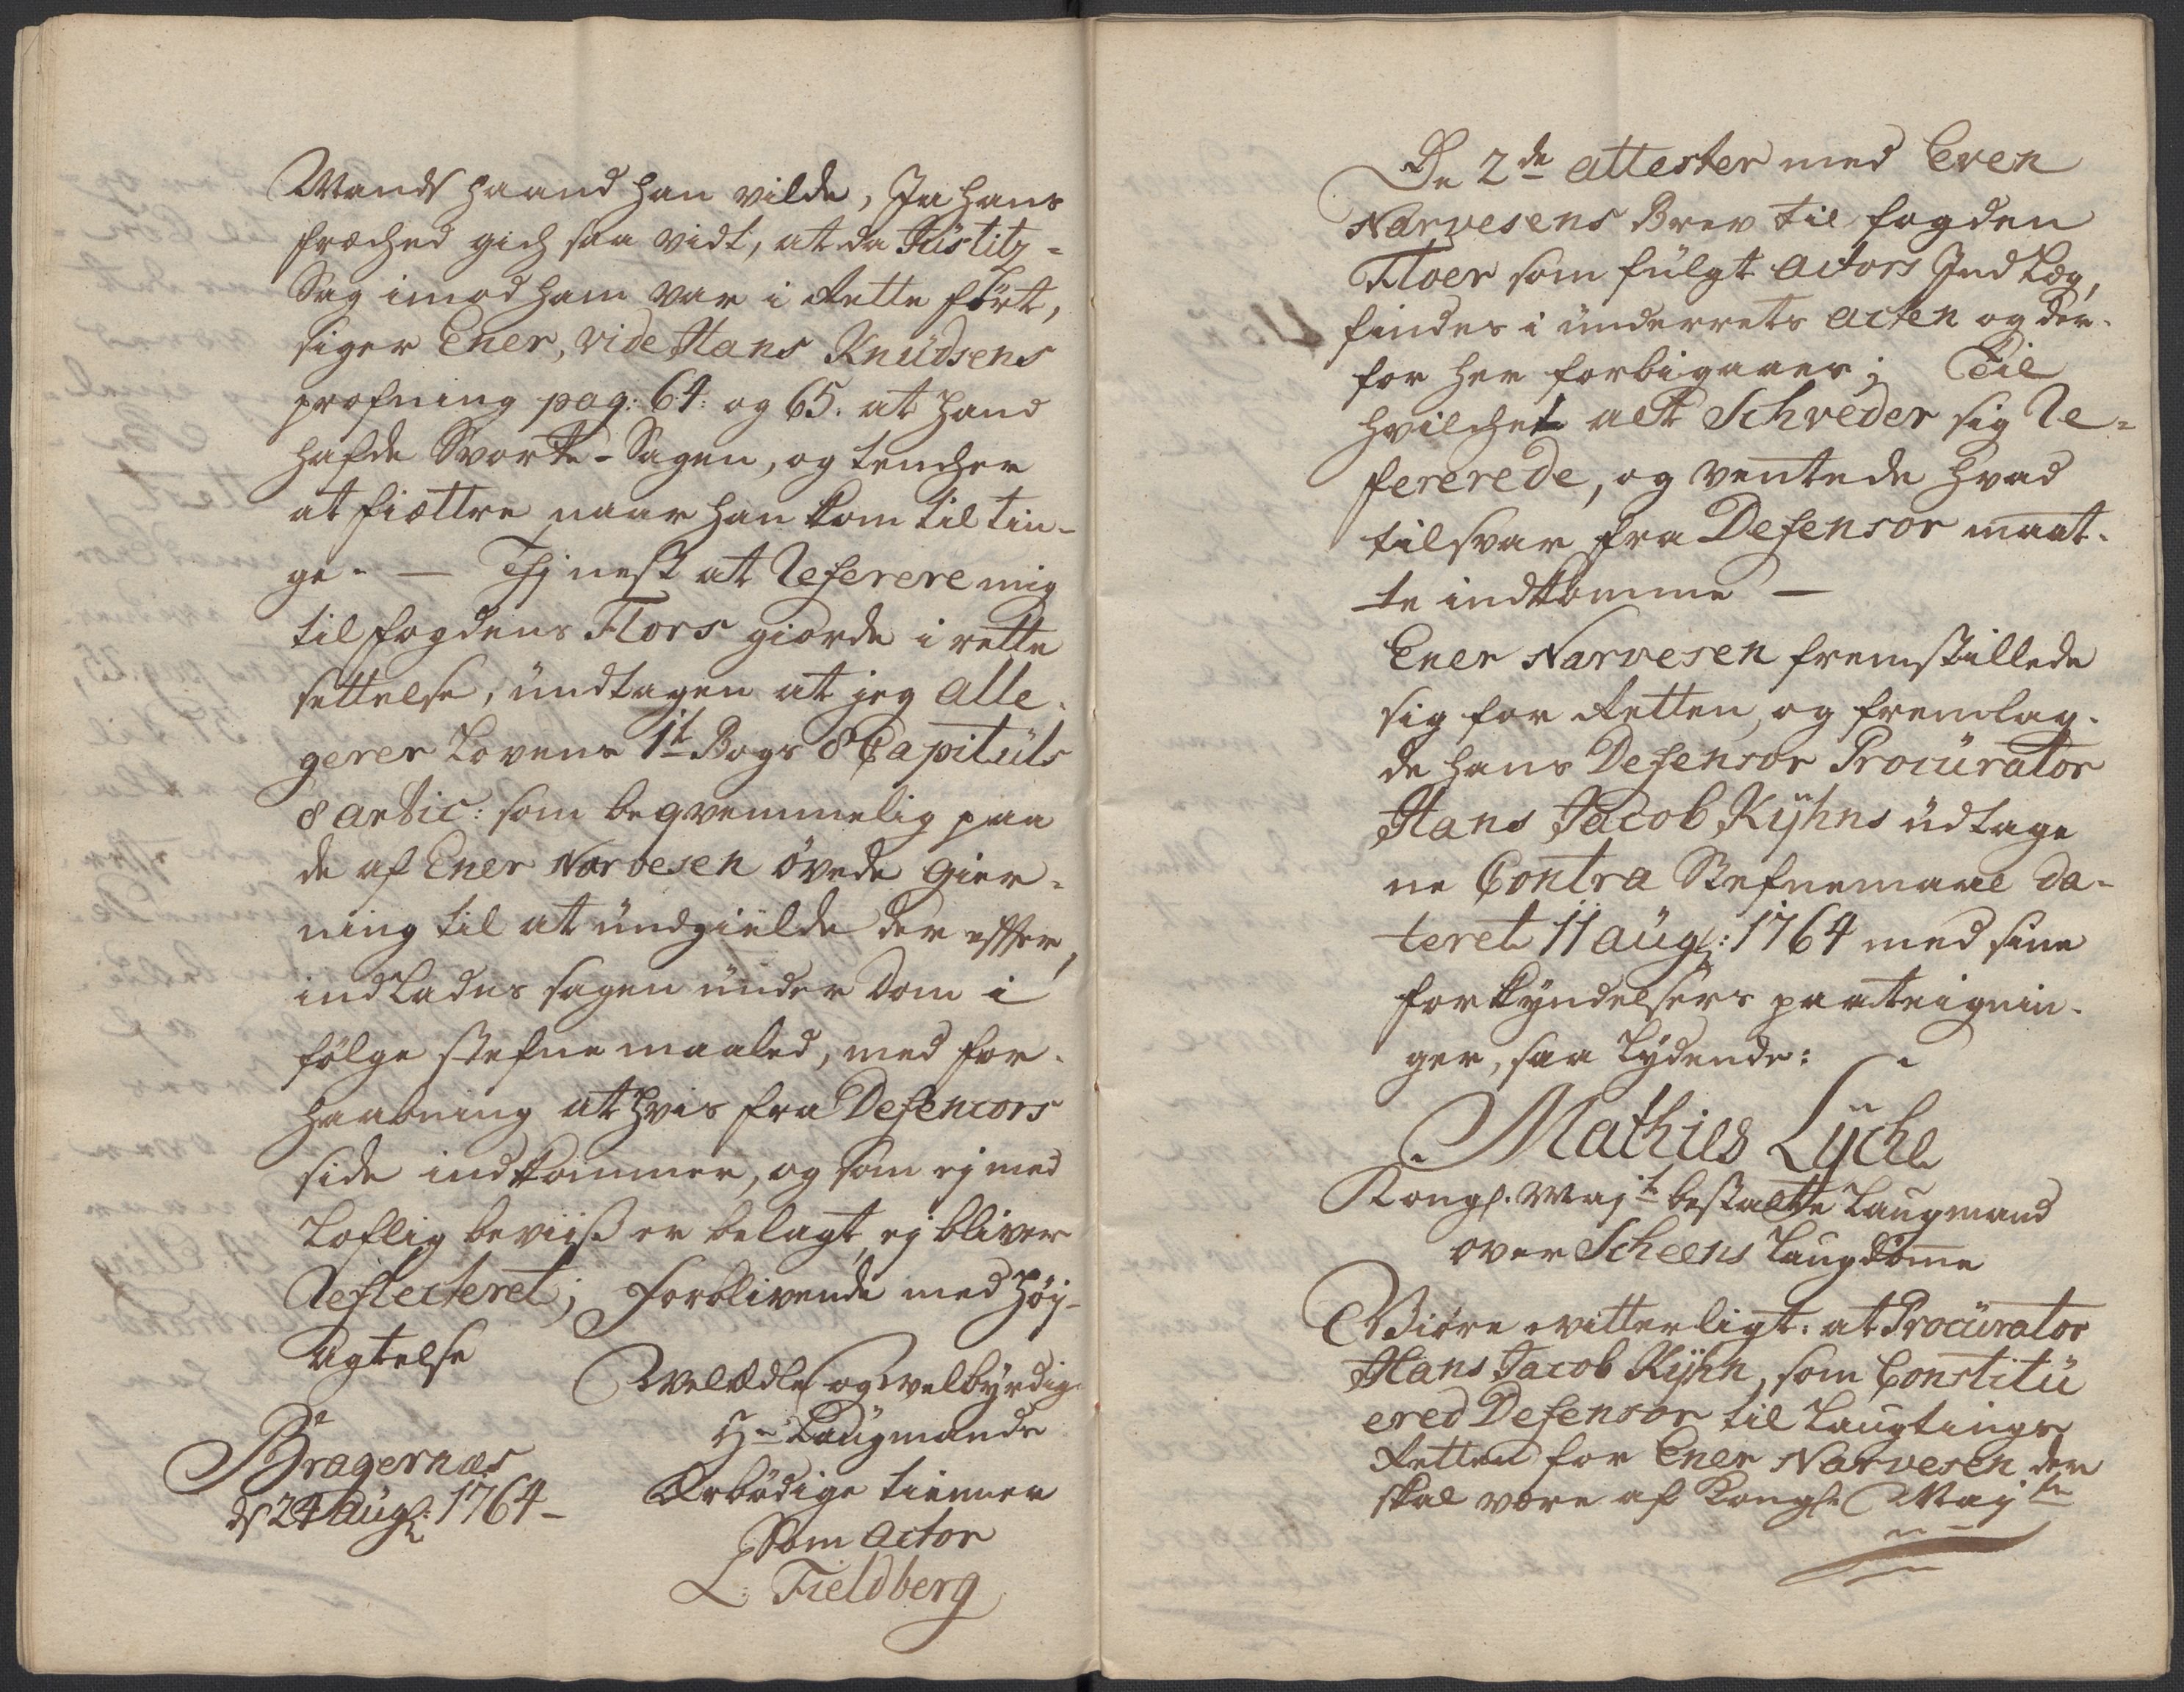 Mands haand han vilde, Ja hans
fræched gich saa vidt, at da Justitz-
Sag imod ham var i Rette ført,
siger Ener, vide Hans Knudsens
prøfning pag: 64: og 65. at hand
hafde Svorte-Sagen, og tencher
at fiættre naar han kom til tin-
ge. — Thj nest at Referere mig
til fogdens Flors giorde i rette
settelse, undtagen at jeg alle-
gerer Lovens 1t Bogs 8 Capituls
8 artic: som beqvemmelig paa
de af Ener Narvesen øvede gier-
ning til at undgielde der efter,
indlades sagen under Dom i
følge stefnemaaled, med for-
haabning at hvis fra Defencors
side indkommer, og som ej med
Loflig beviiß er belagt, ej bliver
Reflecteret; Forblivende med Høy-
agtelse
Velædle og Velbyrdig
Hr Laugmands
Ærbødige tienner
Som Actor
L: Fieldberg
Bragernæs
ds 24 Augl: 1764-
De 2de attester med Even
Narvesens Brev til fogden
Floer som fulgt actors Indlæg,
findes i underrets acten og der-
for her forbigaaes; Til
hvilchet alt Schreder sig Re-
fererede, og ventede hvad
tilsvar fra Defensor maat-
te indkomme —
Ener Narvesen fremstillede
sig for Retten, og fremlag-
de hans Defensor Procurator
Hans Jacob Kÿhns udtage
ne Contra Stefnemaal da-
teret 11 augl: 1764 med sine
forkyndelsers paateignin-
ger, saa lydende:
Mathies Lÿche
Kongl. Majt bestaltte Laugmand
over Scheens Laugdømme
Giøre vitterligt: at Procurator
Hans Jacob Kÿhn, som Constitu
ered Defensor til Laugtings
Retten for Ener Narvesen der
skal være af Kongl Maj